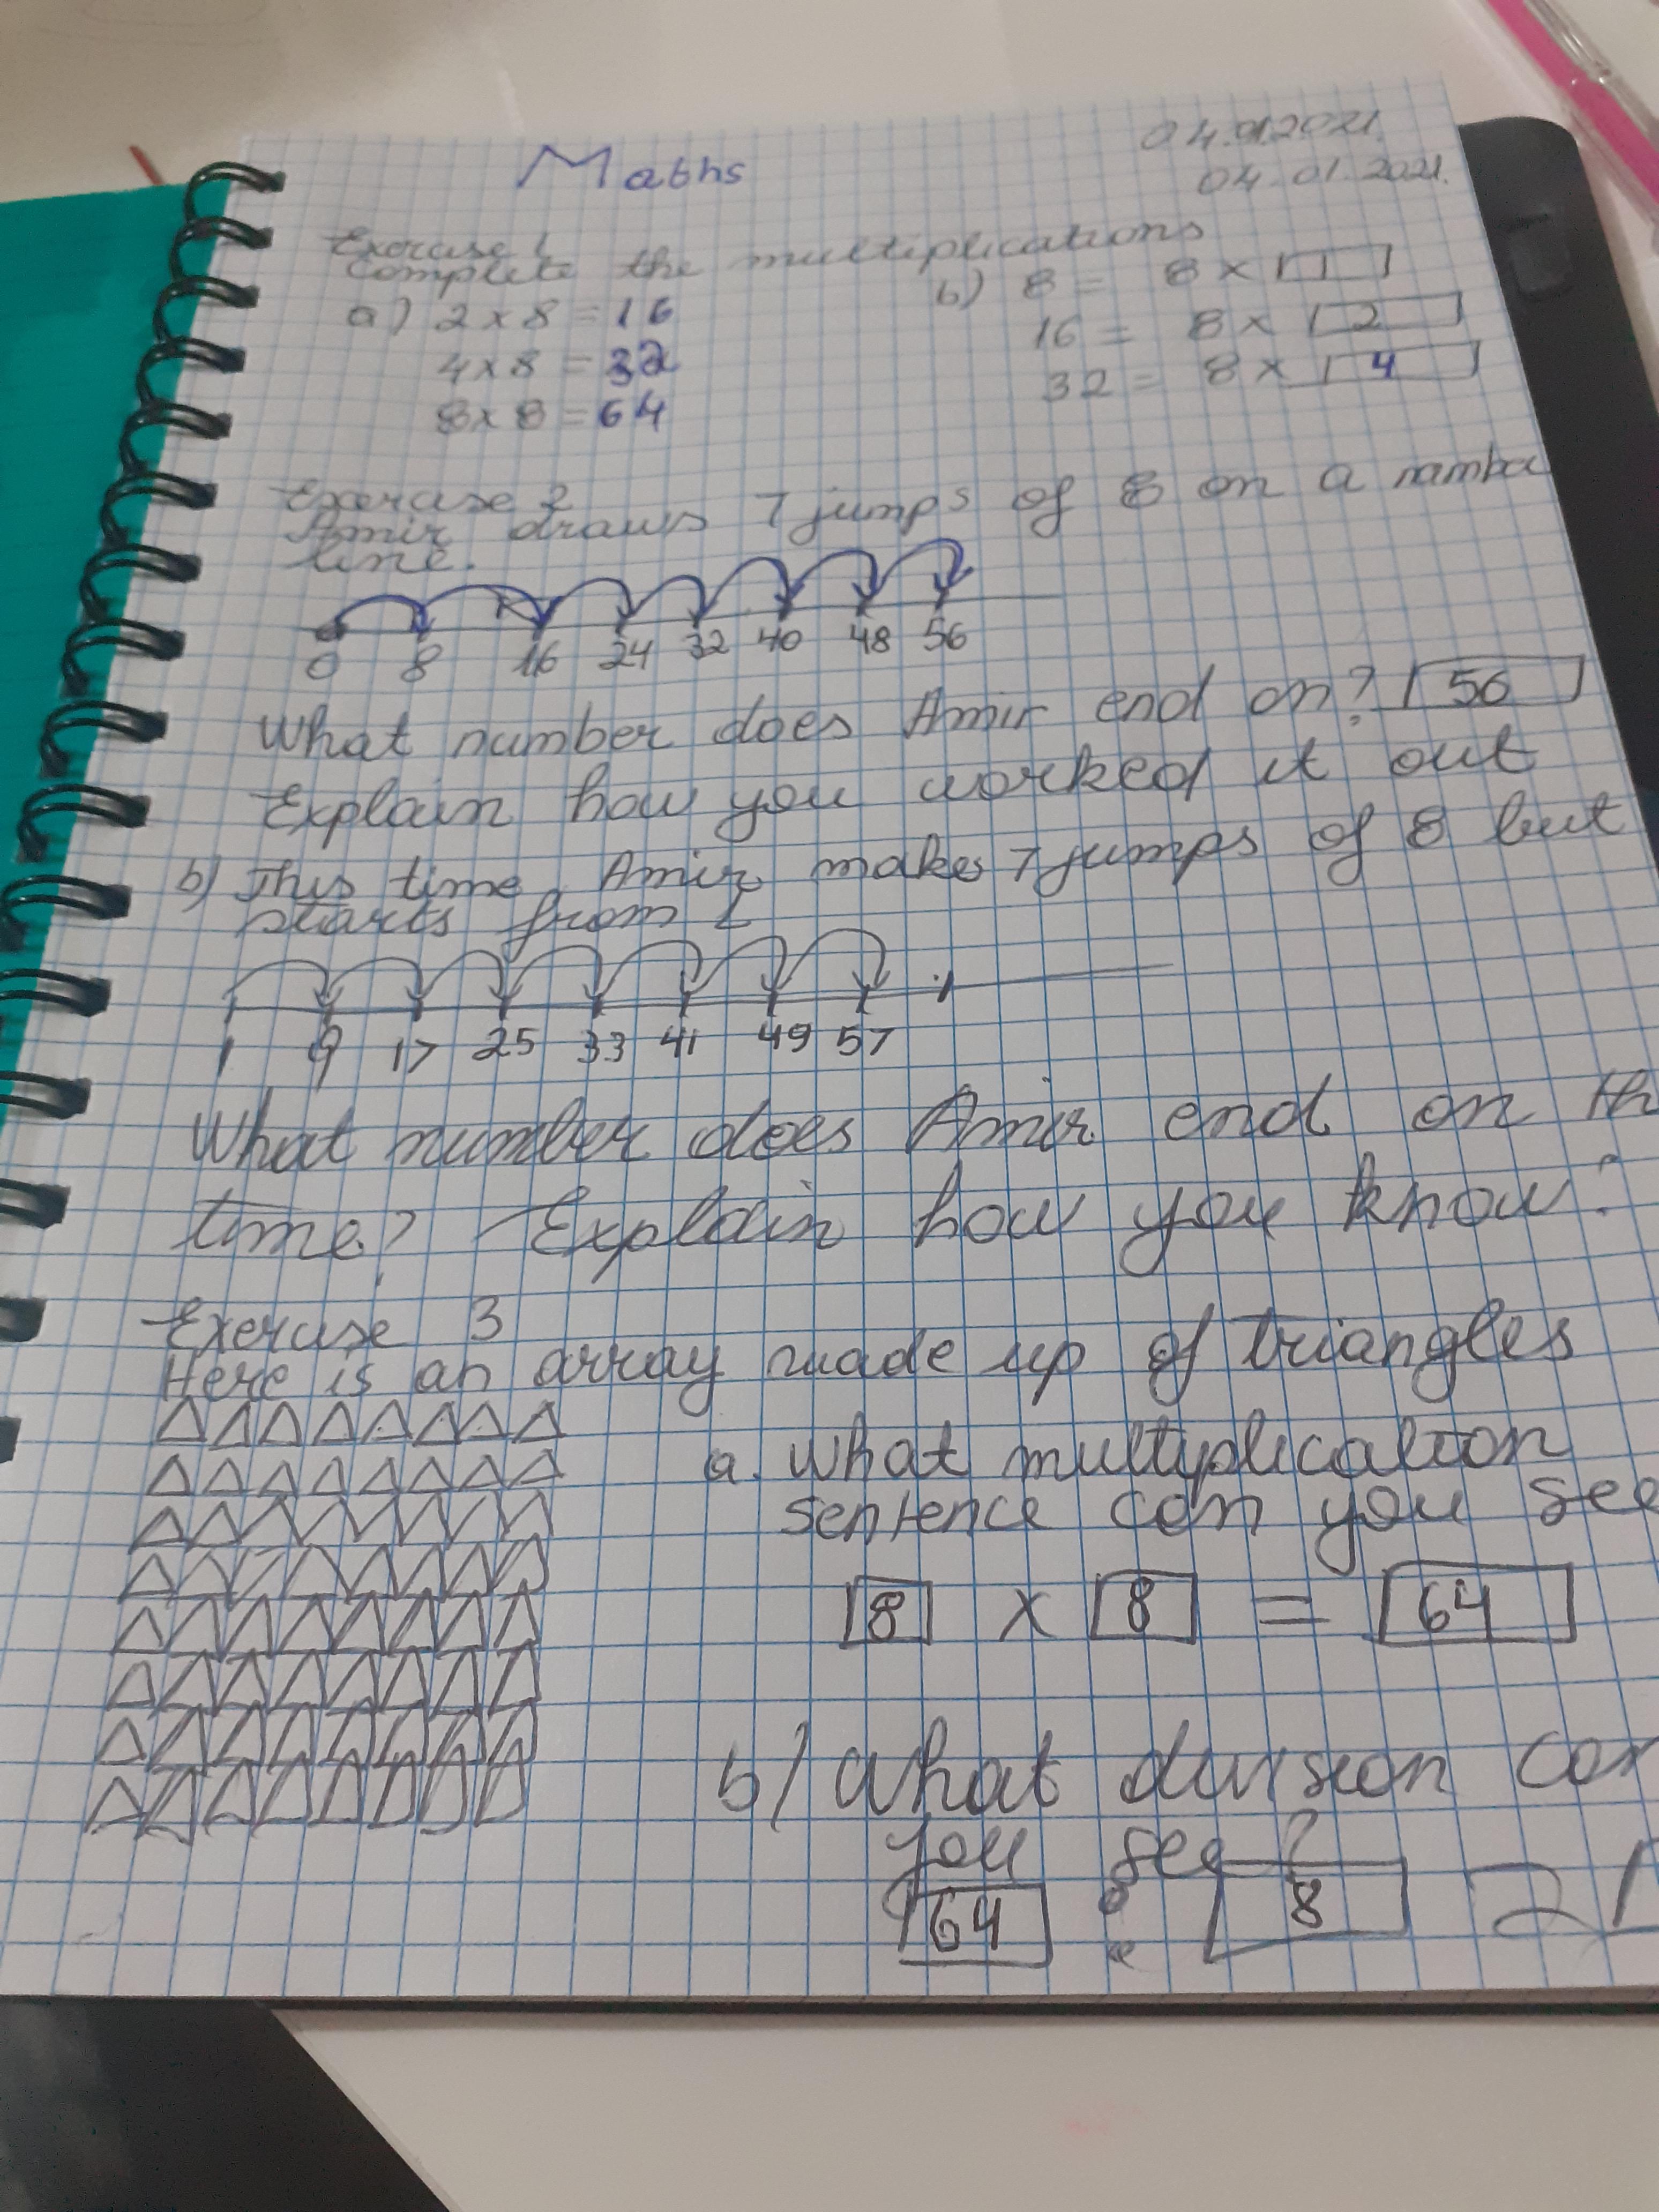 Maths
04.01.2021.
04.01.2021.
Exercise 1
Complete the multiplications
a) 2 x 8 = 16
4 x 8 = 32
8 x 8 = 64
b) 8 = 8 x 1
16 = 8 x 2
32 = 8 x 4
Exercise 2
Amir draws 7 jumps of 8 on a
line.
0 8 16 24 32 40 48 56
What number does Amir end on? 56
Explain how you worked it out
b) This time Amir makes 7 jumps of 8 but
starts from 1
1 9 17 25 33 41 49 57
What number does Amir end on th
time? Explain how you know?
Exercise 3
Here is an array made up of triangles
a. What multyplication
sentence can you see
8 x 8 = 64
b) What division can
you see?
64 : 8